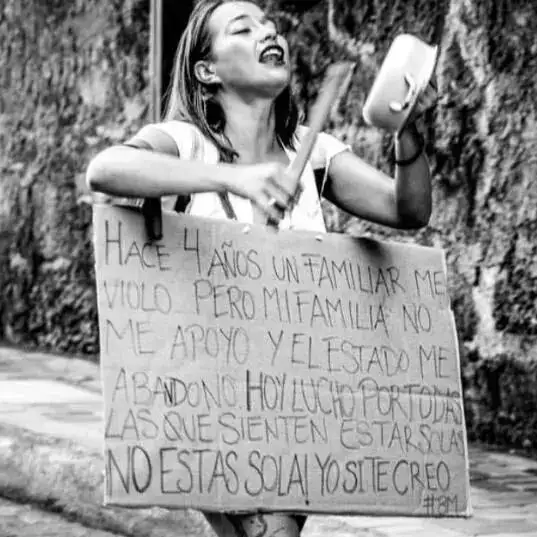 HACE 4 AÑOS UN FAMILIAR ME
VIOLO PERO MI FAMILIA NO
ME APOYO Y EL ESTADO ME
ABANDONO. HOY LUCHO POR TODAS
LAS QUE SIENTEN ESTAR SOLAS
NO ESTAS SOLA! YO SI TE CREO
#8M